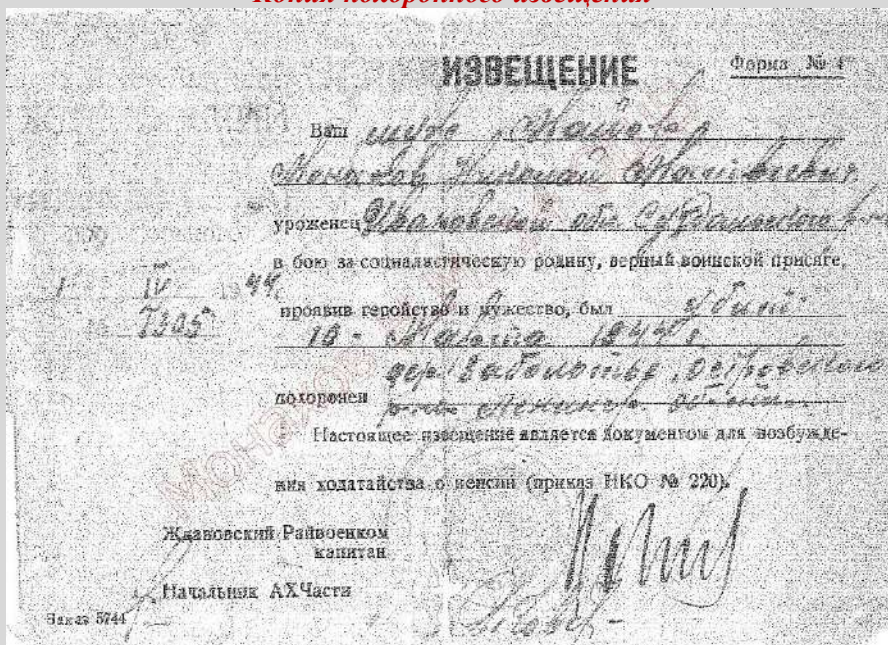 Копия похоронного извещения
ИЗВЕЩЕНИЕ
Форма № 4
Ваш муж
Монахов Николай
уроженец Ивановской обл. Суздальского р-на
в бою за социалистическую родину, верный воинской присяге,
1 IV 1944
проявив геройство и мужество, был убит
7305
10 - Марта 1944 г.
дер. Островского
похоронен р-на Ленингр. области
Настоящее извещение является документом для возбужде-
ния ходатайства о пенсии (приказ НКО № 220).
Ждановский Райвоенком
капитан
Начальник АХЧасти
Заказ 5744